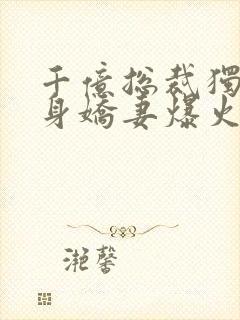 千億總裁獨
身嬌妻爆火
滟馨